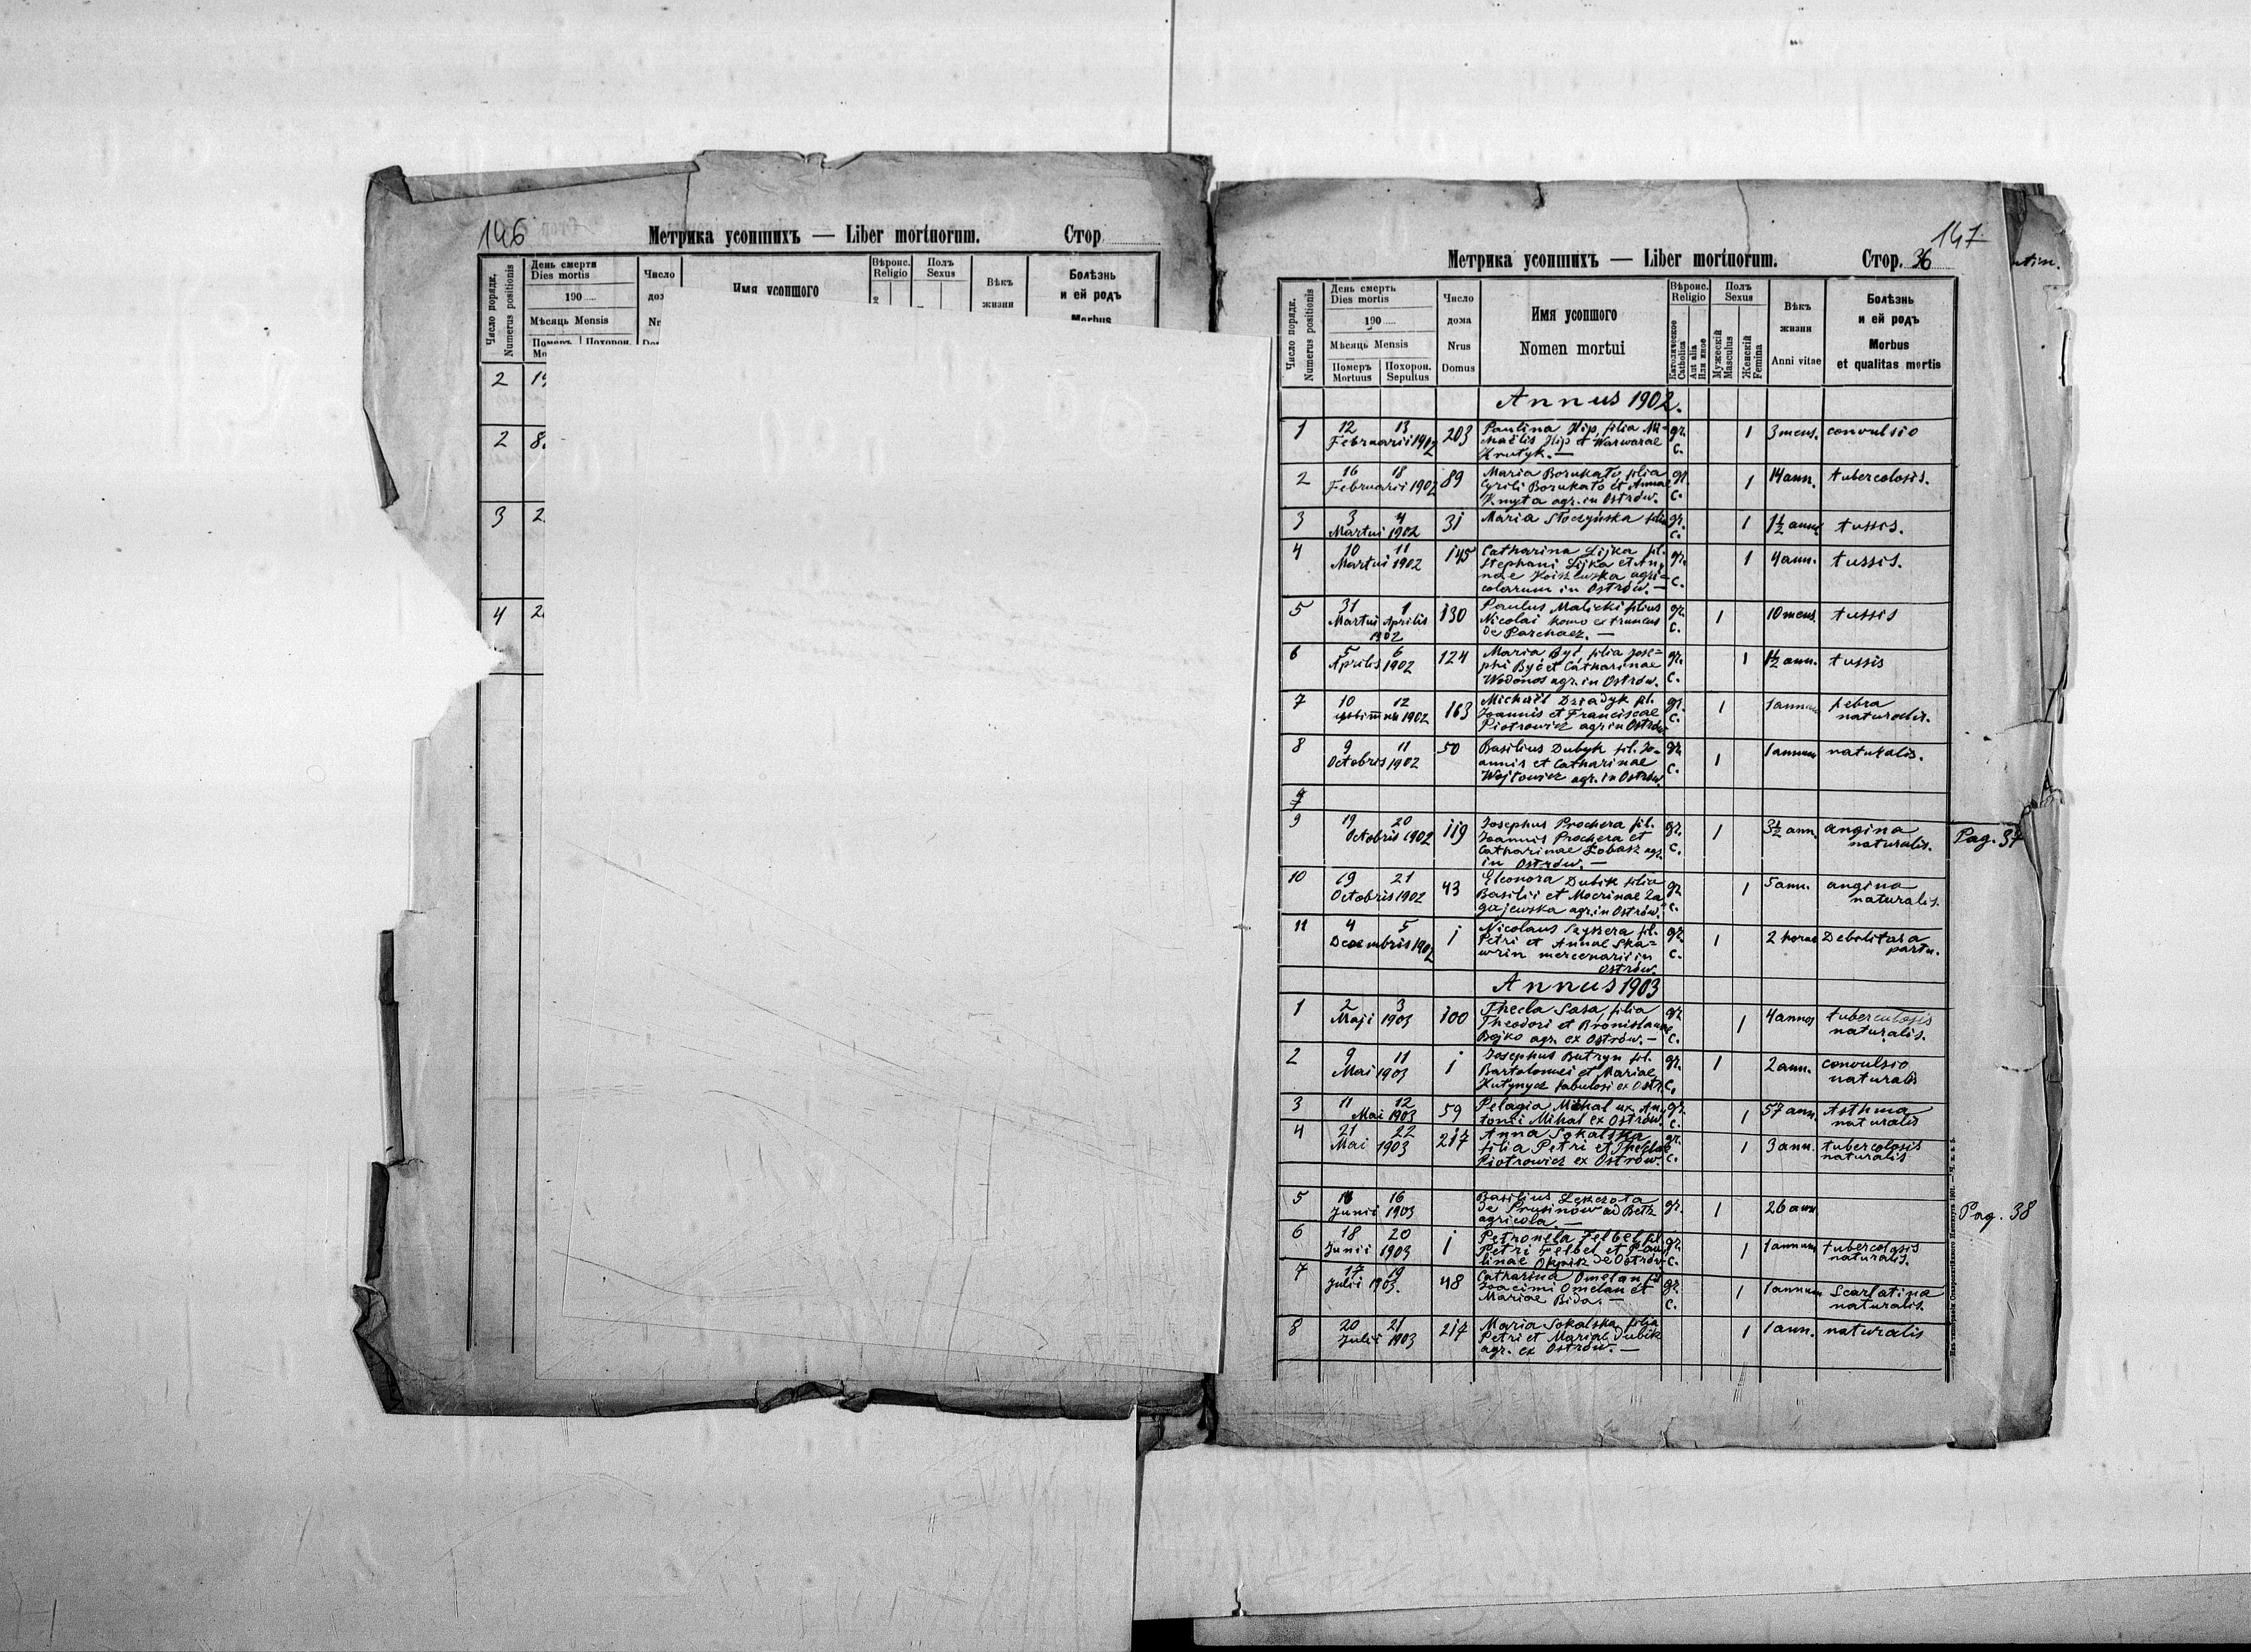 146
Метрика усопшихъ — Liber mortuorum. Стор
Число порядк.
Numerus positionis
День смерти
Dies mortis
190
Мѣсяць Mensis
Число
Имя усопшого
Вѣроис.
Religio
Полъ
Sexus
Вѣкъ
жизни
Болѣзнь
и ей родъ
2
2
3
4
147
Метрика усопшихъ — Liber mortuorum. Стор. 36
Число порядк.
Numerus positionis
День смерть
Dies mortis
190
Мѣсяць Mensis
Померъ Mortuus
Похорон. Sepultus
Число
дома
Nrus
Domus
Имя усопшого
Nomen mortui
Вѣроис.
Religio
Католическое
Catholica
Aut alia
Или иное
Полъ
Sexus
Мужескій
Masculus
Женскій
Femina
Вѣкъ
жизни
Anni vitae
Болѣзнь
и ей родъ
Morbus
et qualitas mortis
Annus 1902.
1 12 13 Februarii 1902 203 Paulina Hip, filia Mi-
chaëlis Hip et Warwarae
Krutyk. — gr. c. 1 3 mens. convulsio
2 16 18 Februarii 1902 89 Maria Borukato filia
Cyrili Borukato et Annae
Kmyta agr. in Ostrów. gr. c. 1 14 ann. tubercolosis.
3 3 4 Martii 1902 31 Maria Słoczyńska filia gr. c. 1 1½ anni tussis.
4 10 11 Martii 1902 145 Catharina Lijka fil.
Stephani Lijka et An-
nae agri-
colarum in Ostrów. — gr. c. 1 4 ann. tussis.
5 31 1 Martii Aprilis
1902 130 Paulus Malicki filius
Nicolai homo extraneus
de Parchacz. — gr. c. 1 10 mens. tussis
6 5 6 Aprilis 1902 124 Maria Być, filia Jose-
phi Być et Catharinae
Wodonos agr. in Ostrów. gr. c. 1 1½ ann. tussis
7 10 12 1902 163 Michaël Dziadyk fil.
Joannis et Franciscae
Piotrowicz agr in Ostrów gr. c. 1 1 annum febra
naturalis.
8 9 11 Octobris 1902 50 Basilius Dubyk fil. Jo-
annis et Catharinae
Wojtowicz agr. in Ostrów. gr. c. 1 1 annum naturalis.
9 19 20 Octobris 1902 119 Josephus Prochera fil.
Joannis Prochera et
Catharinae Łobasz agr.
in Ostrów. — gr. c. 1 3½ ann. angina
naturalis.
Pag. 37
10 19 21 Octobris 1902 43 Eleonora Dubik filia
Basilii et Mocrinae Za
gajewska agr. in Ostrów. gr. c. 1 5 ann. angina
naturalis.
11 4 5 Decembris 1902 1 Nicolaus fil.
Petri et Annae Ska-
wrin mercenarii in
Ostrów. gr. c. 1 2 horas Debolitas a
partu.
Annus 1903
1 2 3 Maji 1903 100 Thecla Sasa, filia
Theodori et Bronislauae
Bojko agr. ex Ostrów. — gr c. 1 4 annos tuberculosis
naturalis.
2 9 11 Mai 1903 1 Josephus Butryn fil.
Bartolomei et Mariae
Hutynycz fabulosi ex Ostr. gr. c. 1 2 ann. convulsio
naturalis
3 11 12 Mai 1903 59 Pelagia Mihal ux. An-
tonii Mihal ex Ostrów. gr. c. 1 57 ann. Asthma
naturalis
4 21 22 Mai 1903 217 Anna Sokalska
filia Petri et Theclae
Piotrowicz ex Ostrów. gr. c. 1 3 ann. tubercolosis
naturalis
5 16 Junii 1903 Basilius
de Prusinów ad Bełz
agricola. — gr. 1 26 ann
Pag. 38
6 18 20 Junii 1903 1 Petronela Felbel fil
Petri Felbel et Pau-
linae de Ostrów gr. c. 1 1 annum tubercolosis
naturalis.
7 17 19 Julii 1903. 48 Catharina Omelan fil
Joacimi Omelan et
Mariae Bida. — gr. c. 1 1 annum Scarlatina
naturalis.
8 20 21 Julii 1903 217 Maria Sokalska filia
Petri et Mariae Dubik
agr. ex Ostrów. — 1 1 ann. naturalis